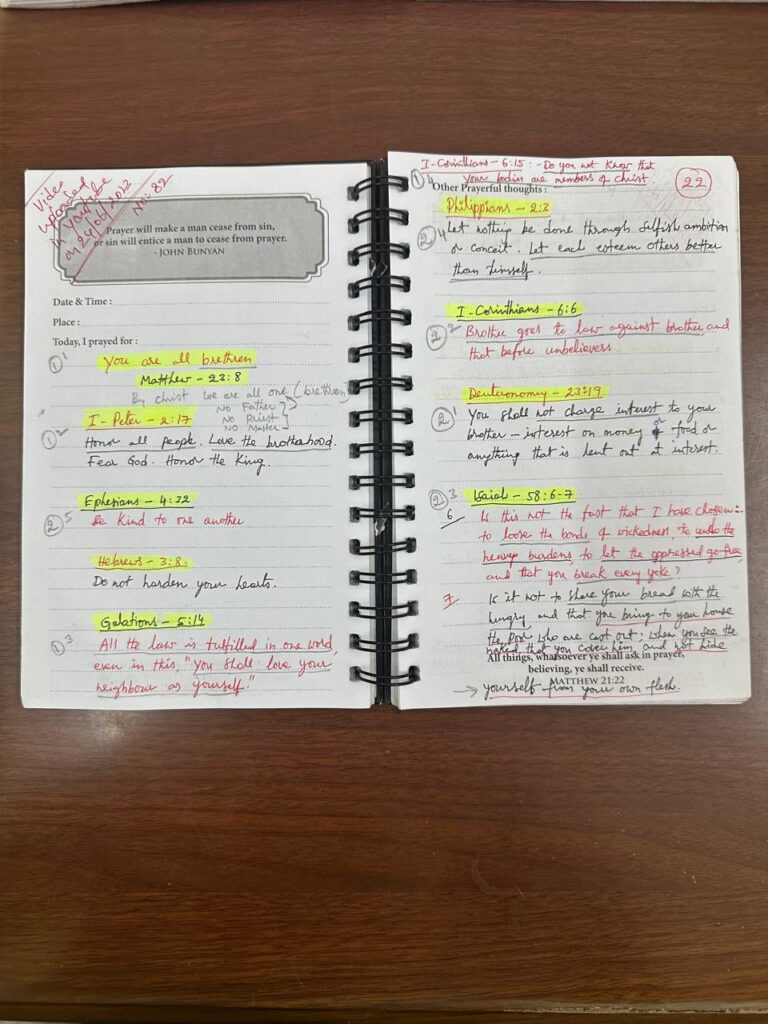 Video
uploaded
in YouTube
on 24/06/2022
No: 82
Prayer will make a man cease from sin,
or sin will entice a man to cease from prayer.
- JOHN BUNYAN
Date & Time :
Place :
Today, I prayed for :
① 1 You are all brethren
Matthew - 23:8
By christ we are all one (brethren)
NO Father
NO Priest
NO Master
I - Peter - 2:17
① 2 Honor all people. Love the brotherhood.
Fear God. Honor the King.
Ephesians - 4:32
② 5 Be kind to one another
Hebrews - 3:8.
Do not harden your hearts.
Galations - 5:14
① 3 All the law is fulfilled in one word,
even in this, "You shall love your
neighbour as yourself."
I - Corinthians - 6:15 : - Do you not know that
① 4 your bodies are members of christ.
22
Other Prayerful thoughts :
Philippians - 2:3
② 4 Let nothing be done through selfish ambition
or conceit. Let each esteem others better
than himself.
I - Corinthians - 6:6
② 2 Brother goes to law against brother, and
that before unbelievers.
Deuteronomy - 23:19
② 1 You shall not charge interest to your
brother – interest on money or food or
anything that is lent out at interest.
② 3 Isaiah - 58:6-7
6 Is this not the fast that I have chosen:-
to loose the bonds of wickedness, to undo the
heavy burdens, to let the oppressed go free,
and that you break every yoke?
7 Is it not to share your bread with the
hungry, and that you bring to your house
the poor who are cast out; when you see the
naked, that you cover him, and not hide
All things, whatsoever ye shall ask in prayer,
believing, ye shall receive.
MATTHEW 21:22
→ yourself from your own flesh.